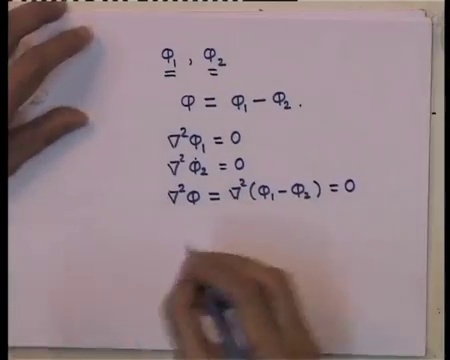 Φ₁ , Φ₂
Φ = Φ₁ − Φ₂ .
∇²Φ₁ = 0
∇²Φ₂ = 0
∇²Φ = ∇²(Φ₁ − Φ₂) = 0